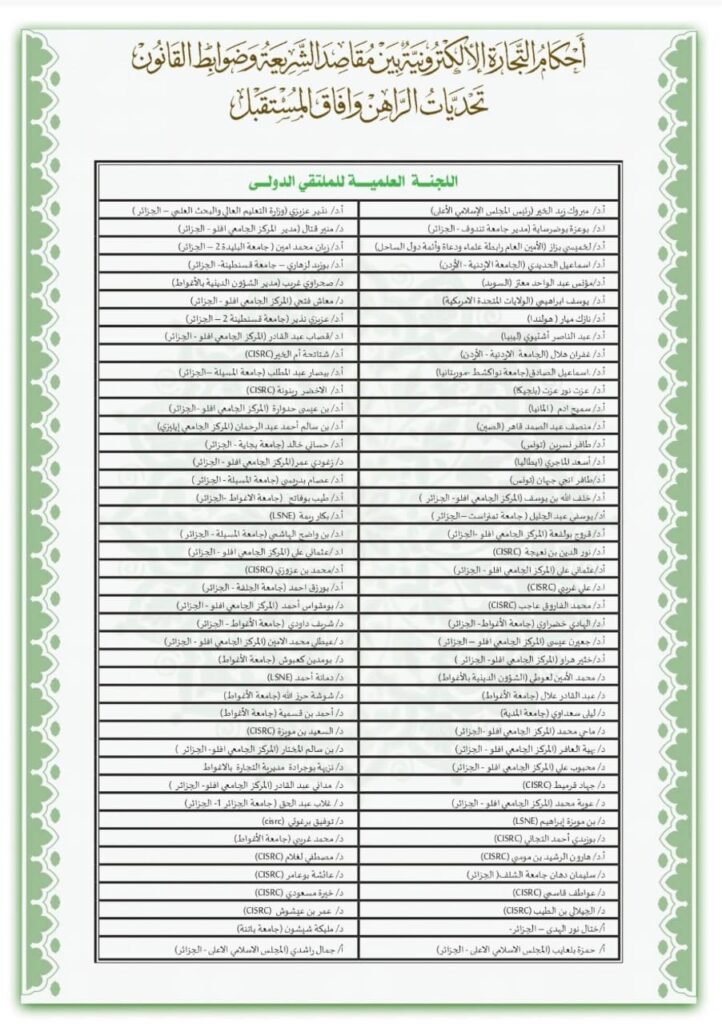 أحكام التجارة الإلكترونية بين مقاصد الشريعة وضوابط القانون
تحديات الراهن وآفاق المستقبل
اللجنــة العلميــة للملتقي الدولـي
أ.د/ مبروك زيد الخير (رئيس المجلس الإسلامي الأعلى) أ.د/ نذير عزيزي (وزارة التعليم العالي والبحث العلمي – الجزائر )
أ.د/ بوعزة بوضرساية (مدير جامعة تندوف - الجزائر) د/ منير قتال (مدير المركز الجامعي افلو - الجزائر)
أ.د/ لخميسي بزاز (الأمين العام رابطة علماء ودعاة وأئمة دول الساحل) أ.د/ زيان محمد امين ( جامعة البليدة 2 – الجزائر )
أ.د/ اسماعيل الحديدي (الجامعة الإردنية - الأردن) أ.د/ بوزيد لزهاري – جامعة قسنطينة- الجزائر)
أ.د/مؤنس عبد الواحد معتز (السويد) د/ صحراوي غريب (مدير الشؤون الدينية بالأغواط)
أ.د/ يوسف ابراهيمي (الولايات المتحدة الامريكية) د/ معاش فتحي (المركز الجامعي افلو - الجزائر)
أ.د/ نازك ميار ( هولندا) أ.د/ عزيزي نذير (جامعة قسنطينة 2 – الجزائر)
أ.د/ عبد الناصر أشتيوي (ليبيا) ا.د/ قصاب عبد القادر (المركز الجامعي افلو - الجزائر)
أ.د/ غفران هلال (الجامعة الإردنية - الأردن) أ.د/ شتاتحة أم الخير (CISRC)
أ.د/. اسماعيل الصادق(جامعة نواكشط -موريتانيا) أ.د/ بيصار عبد المطلب (جامعة المسيلة –الجزائر)
أ.د/ عزت نور عزت (بلجيكا) أ.د/ الاخضر رينوبة (CISRC)
أ.د/ سميح ادم ( المانيا) أ.د/ بن عيسى حدوارة (المركز الجامعي افلو -الجزائر)
أ.د/ منصف عبد الصمد قاهر (الصين) أ.د/ بن سالم أحمد عبد الرحمان (المركز الجامعي إيليزي)
أ.د/ طافر نسرين (تونس) أ.د/ حساني خالد (جامعة بجاية - الجزائر)
أ.د/ أسعد الماجري (ايطاليا) د/ زغودي عمر(المركز الجامعي افلو - الجزائر)
أ.د/طافر انجي جيهان (تونس) أ.د/ عصام بدريسي (جامعة المسيلة - الجزائر)
أ.د/ خلف الله بن يوسف (المركز الجامعي افلو- الجزائر ) أ.د/ طيب بوفاتح (جامعة الاغواط -الجزائر)
أ.د/يوسفي عبد الجليل ( جامعة تمنراست –الجزائر ) أ.د/ بكار ريمة (LSNE)
أ.د/ قروج بولفعة (المركز الجامعي افلو -الجزائر) ا.د/ بن واضح الهاشمي (جامعة المسيلة - الجزائر )
أ.د/ نور الدين بن نعيجة (CISRC) ا.د/عثماني علي (المركز الجامعي افلو - الجزائر)
أ.د/عثماني علي (المركز الجامعي افلو - الجزائر) أ.د/محمد بن عزوزي (CISRC)
ا.د/ علي غريبي (CISRC) أ.د/ بورزق احمد (جامعة الجلفة - الجزائر)
أ.د/ محمد الفاروق عاجب (CISRC) د/ بومقواس أحمد (المركز الجامعي افلو - الجزائر)
أ.د/ الهادي خضراوي (جامعة الأغواط- الجزائر) د/ شريف داودي (جامعة الأغواط - الجزائر)
أ.د/ جعيرن عيسى (المركز الجامعي افلو – الجزائر) د/عيطلي محمد الامين (المركز الجامعي افلو - الجزائر)
أ.د/خثير هراو (المركز الجامعي افلو- الجزائر ) د/ بومدين كعبوش (جامعة الأغواط)
د/ محمد الأمين لعوطي (الشؤون الدينية بالأغواط) د/ دمانة أحمد (LSNE)
د/ عبد القادر علال (جامعة الأغواط) د/ شوشة حرز الله (جامعة الأغواط)
د/ ليلى سعداوي (جامعة المدية) د/ أحمد بن قسمية (جامعة الأغواط)
د/ ماحي محمد (المركز الجامعي افلو -الجزائر) د/ السعيد بن مويزة (CISRC)
د/ بهية العافر (المركز الجامعي افلو - الجزائر) د/ بن سالم المختار (المركز الجامعي افلو- الجزائر )
د/ محبوب علي (المركز الجامعي افلو - الجزائر) د/ نزيهة بوجرادة مديرية التجارة بالاغواط
د/ جهاد قرميط (CISRC) د/ مداني عبد القادر (المركز الجامعي افلو- الجزائر )
د/ عوبة محمد (المركز الجامعي افلو - الجزائر) د/ غلاب عبد الحق ( جامعة الجزائر 1- الجزائر)
د/ بن مويزة إبراهيم (LSNE) د/ توفيق برغوثي (cisrc)
د/ بوزيدي أحمد التجاني (CISRC) د/ محمد غريبي (جامعة الأغواط)
أ.د/ هارون الرشيد بن موسى (CISRC) د/ مصطفى لغلام (CISRC)
د/ سليمان دهان جامعة الشلف( الجزائر) د/ عائشة بوعامر (CISRC)
د/ عواطف قاسمي (CISRC) د/ خيرة مسعودي (CISRC)
د/ الجيلالي بن الطيب (CISRC) د/ عمر بن عيشوش (CISRC)
أ/ختال نور الهدى – الجزائر- د/ مليكة شيشون (جامعة باتنة)
أ/ حمزة بلعايب (المجلس الاسلامي الاعلى - الجزائر) أ/ جمال راشدي (المجلس الاسلامي الاعلى - الجزائر)